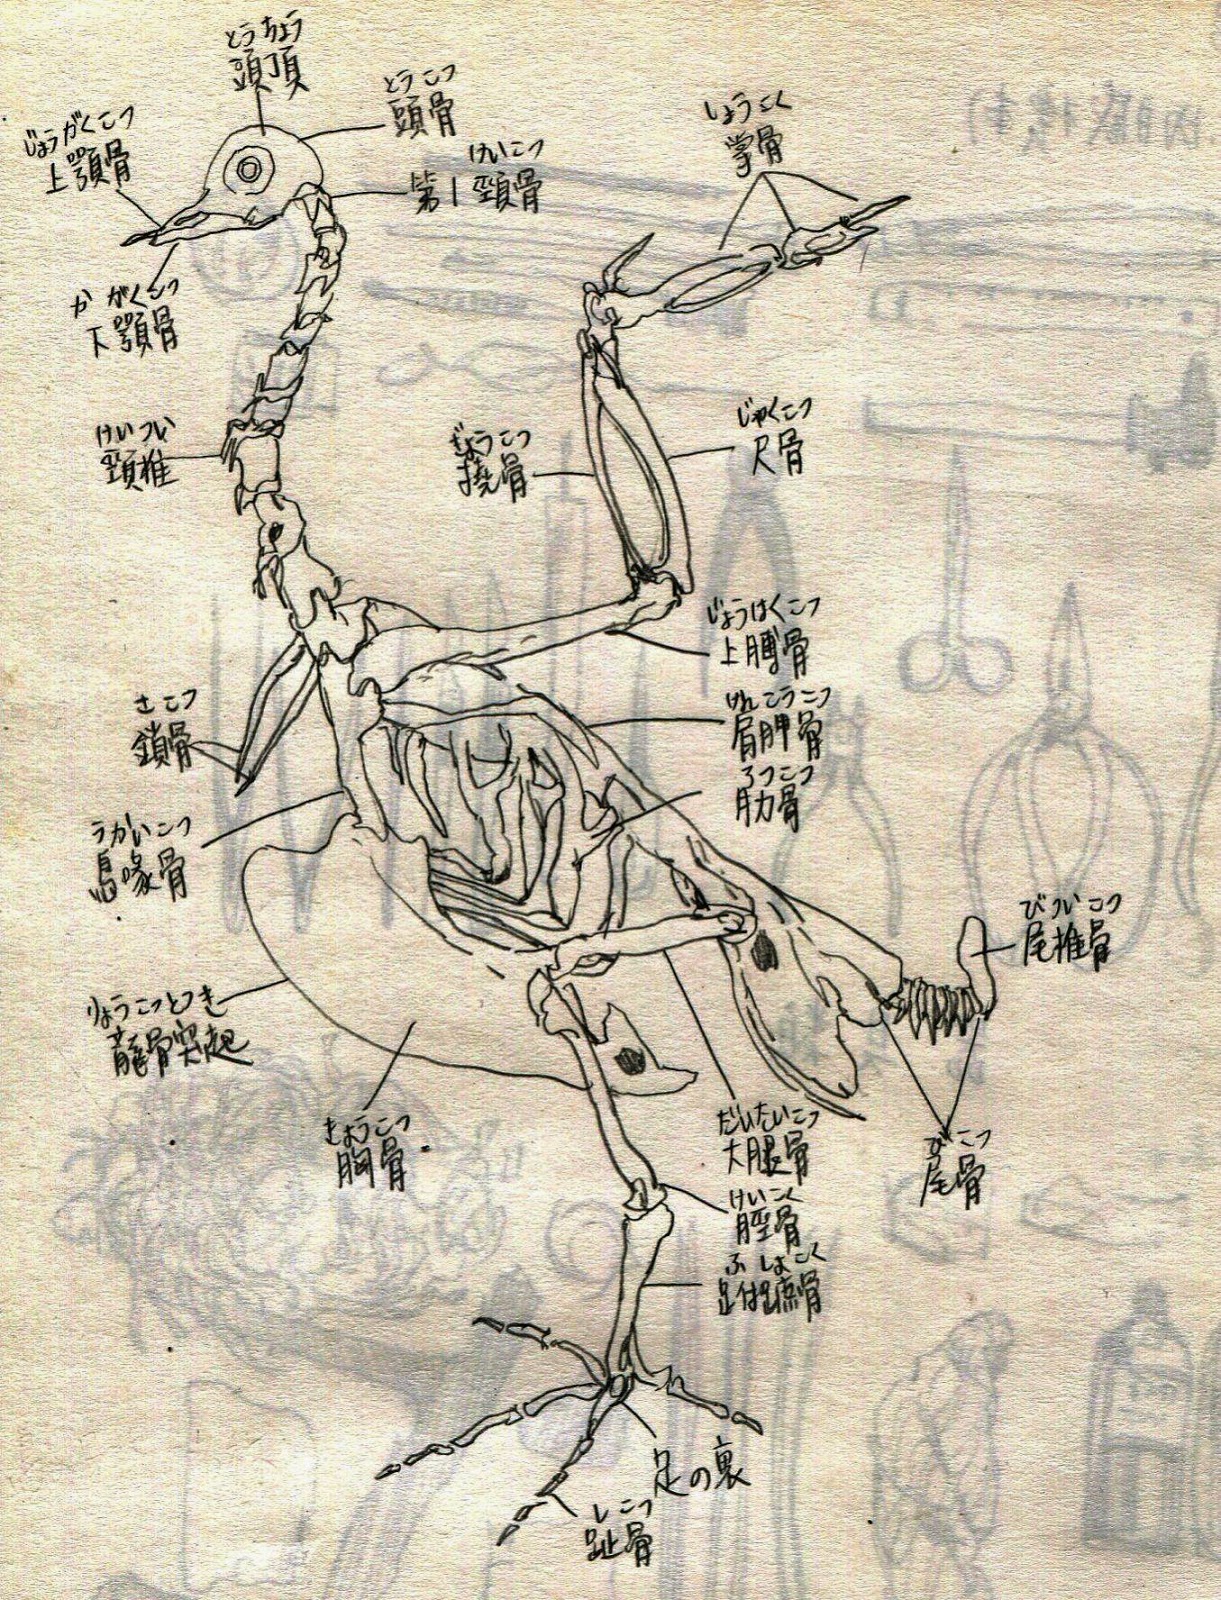 とうちょう
頭頂
とうこつ
頭骨
じょうがくこつ
上顎骨
けいこつ
第1頸骨
しょうこく
掌骨
かがくこつ
下顎骨
けいつい
頸椎
ぎょうこつ
撓骨
じゃくこつ
尺骨
じょうはくこつ
上膊骨
けんこうこつ
肩胛骨
ろつこつ
肋骨
さこつ
鎖骨
うかいこつ
烏喙骨
びついこつ
尾椎骨
りょうこつとつき
龍骨突起
きょうこつ
胸骨
だいたいこつ
大腿骨
びこつ
尾骨
けいこく
脛骨
ふしょこく
跗蹠骨
足の裏
しこつ
趾骨